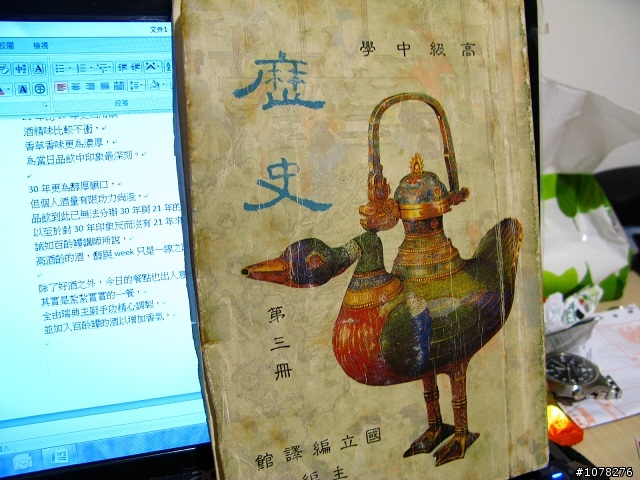 文件1
檢視
段落
酒精味比較不衝，
香草香味更為濃厚，
為當日品飲中印象最深刻。
30 年更為醇厚順口，
但個人酒量有限功力尚淺，
品飲到此已無法分辨 30 年與 21 年的
以至於對 30 年印象反而沒有 21 年來
誠如百齡罈講師所說，
高酒齡的酒，醇與 week 只是一線之
除了好酒之外，今日的餐點也出人意
其實是紮紮實實的一餐，
全由瑞典主廚手功精心調製，
並加入百齡罈的酒以增加香氣
高級中學
歷史
第三冊
國立編譯館
主編
#1078276